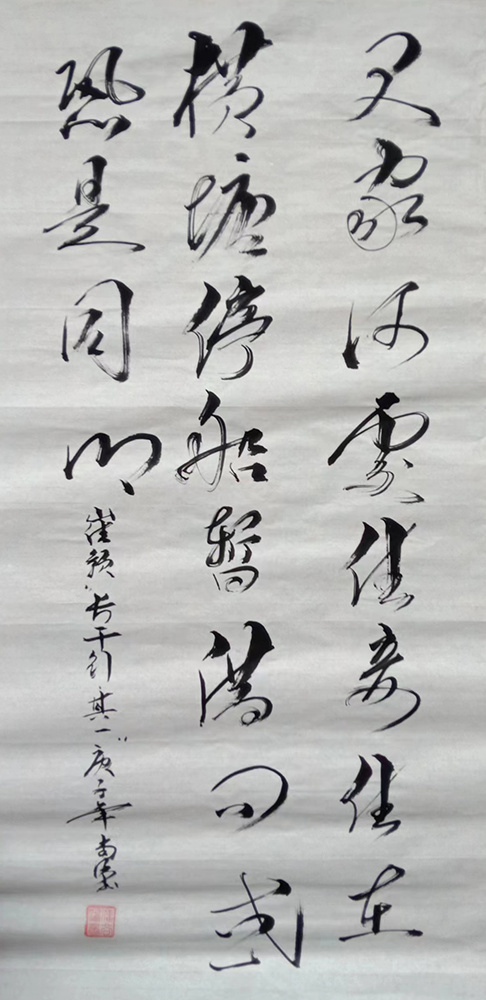 君家何處住妾住在
橫塘停船暫借問或
恐是同鄉
崔顥長干行其一庚子年